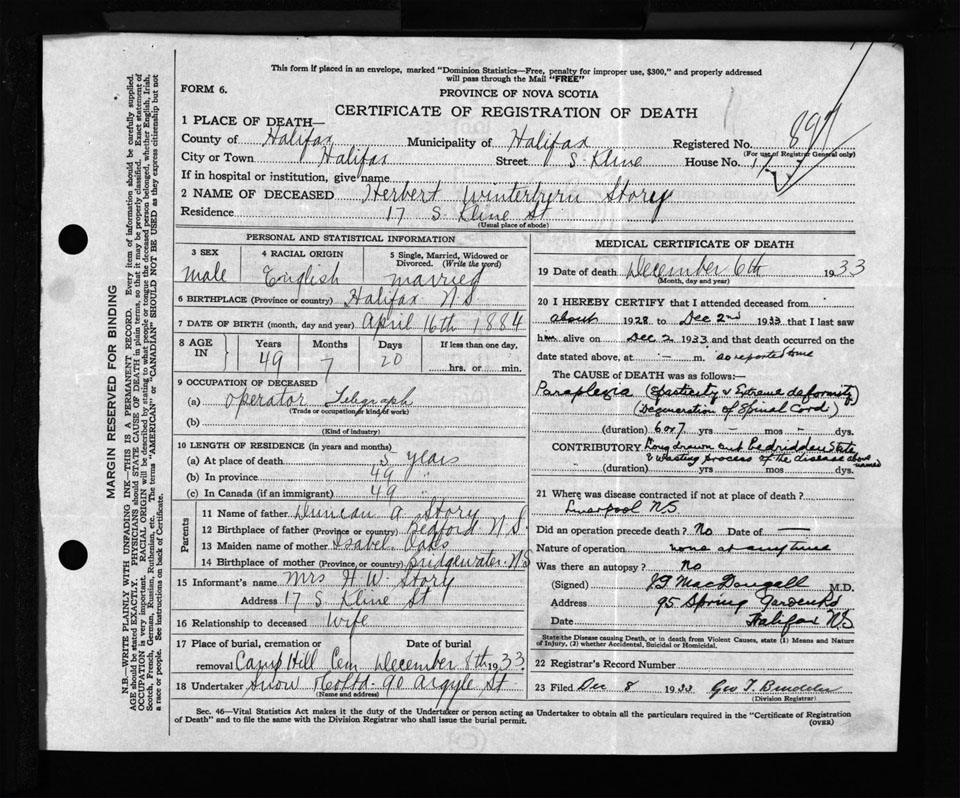 This form if placed in an envelope, marked "Dominion Statistics—Free, penalty for improper use, $300," and properly addressed
will pass through the Mail "FREE"
FORM 6.
PROVINCE OF NOVA SCOTIA
CERTIFICATE OF REGISTRATION OF DEATH
1 PLACE OF DEATH—
County of Halifax Municipality of Halifax Registered No. 897
(For use of Registrar General only)
City or Town Halifax Street S. Kline House No. 17
If in hospital or institution, give name
2 NAME OF DECEASED Herbert Story
Residence 17 S. Kline St
(Usual place of abode)
PERSONAL AND STATISTICAL INFORMATION
3 SEX 4 RACIAL ORIGIN 5 Single, Married, Widowed or Divorced. (Write the word)
Male English married
6 BIRTHPLACE (Province or country) Halifax N.S
7 DATE OF BIRTH (month, day and year) April 16th 1884
8 AGE IN Years Months Days If less than one day,
49 7 20 hrs. or min.
9 OCCUPATION OF DECEASED
(a) Operator Telegraph
(Trade or occupation or kind of work)
(b)
(Kind of industry)
10 LENGTH OF RESIDENCE (in years and months)
(a) At place of death 5 years
(b) In province 49 "
(c) In Canada (if an immigrant) 49 "
Parents
11 Name of father Duncan A. Story
12 Birthplace of father (Province or country) Bedford N.S.
13 Maiden name of mother Isabel Oaks
14 Birthplace of mother (Province, or country) Bridgewater. N.S
15 Informant's name Mrs H. W. Story
Address 17 S. Kline St
16 Relationship to deceased Wife
17 Place of burial, cremation or removal Date of burial
Camp Hill Cem December 8th 1933
18 Undertaker Snow & Co Ltd. 90 Argyle St
(Name and address)
MEDICAL CERTIFICATE OF DEATH
19 Date of death December 6th 1933
(Month, day and year)
20 I HEREBY CERTIFY that I attended deceased from
about 1928 to Dec 2nd 1933 that I last saw
him alive on Dec 2 1933 and that death occurred on the
date stated above, at — m. as reported to me
The CAUSE OF DEATH was as follows:—
Paraplegia (Spasticity & Extreme deformity)
(Degeneration of Spinal Cord)
(duration) 6 or 7 yrs — mos — dys.
CONTRIBUTORY Long drawn out Bedridden State
& Wasting process of the disease above named
(duration) yrs mos dys.
21 Where was disease contracted if not at place of death?
Liverpool N.S
Did an operation precede death? No Date of —
Nature of operation none at any time
Was there an autopsy? No
(Signed) J.G. MacDougall M.D.
Address 95 Spring Garden Rd
Date Halifax N.S
State the Disease causing Death, or in death from Violent Causes, state (1) Means and Nature
of Injury, (2) whether Accidental, Suicidal or Homicidal.
22 Registrar's Record Number
23 Filed Dec 8 1933 Geo T.
(Division Registrar)
Sec. 46—Vital Statistics Act makes it the duty of the Undertaker or person acting as Undertaker to obtain all the particulars required in the "Certificate of Registration
of Death" and to file the same with the Division Registrar who shall issue the burial permit.
(OVER)
MARGIN RESERVED FOR BINDING
N.B.—WRITE PLAINLY WITH UNFADING INK—THIS IS A PERMANENT RECORD. Every item of information should be carefully supplied.
AGE should be stated EXACTLY. PHYSICIANS should STATE CAUSE OF DEATH in plain terms, so that it may be properly classified. Exact statement of
OCCUPATION is very important. RACIAL ORIGIN will be described by stating to what people or tongue the deceased person belonged, whether English, Irish,
Scotch, French, German, Russian, Ruthenian, etc. The terms "AMERICAN" or "CANADIAN" SHOULD NOT BE USED as they express citizenship but not
a race or people. See instructions on back of Certificate.